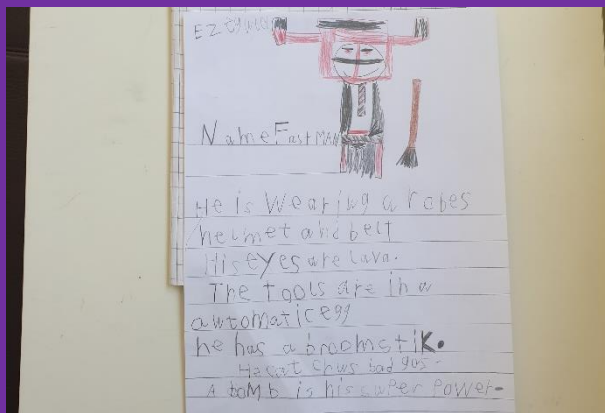 Name. Fast MAN
He is Wearing a robes
helmet and belt
His eyes are Lava.
The Tools are in a
automatic egg
he has a broomstik.
bad
A boMb is his super Power-